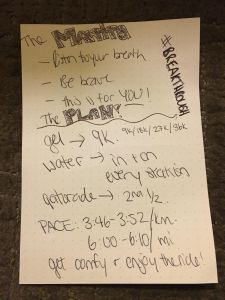 The Mantra
- Firm to your breath
- Be brave
- this is for YOU!
#BREAKTHROUGH
The PLAN!
gel → 9k. 9k/18k/27k/36k
water → in + on
every station
gatorade → 2nd 1/2.
PACE: 3:46-3:52/km.
6:00-6:10/mi
get comfy + enjoy the ride!